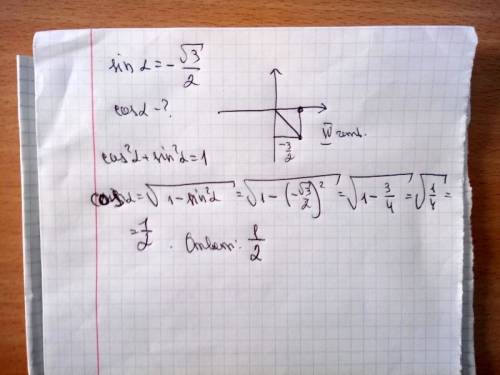 sin α = - √3/2
cos α - ?
- 3/2
IV четв.
cos²α + sin²α = 1
cos α = √(1 - sin²α) = √(1 - (-√3/2)²) = √(1 - 3/4) = √(1/4) =
= 1/2 . Ответ: 1/2